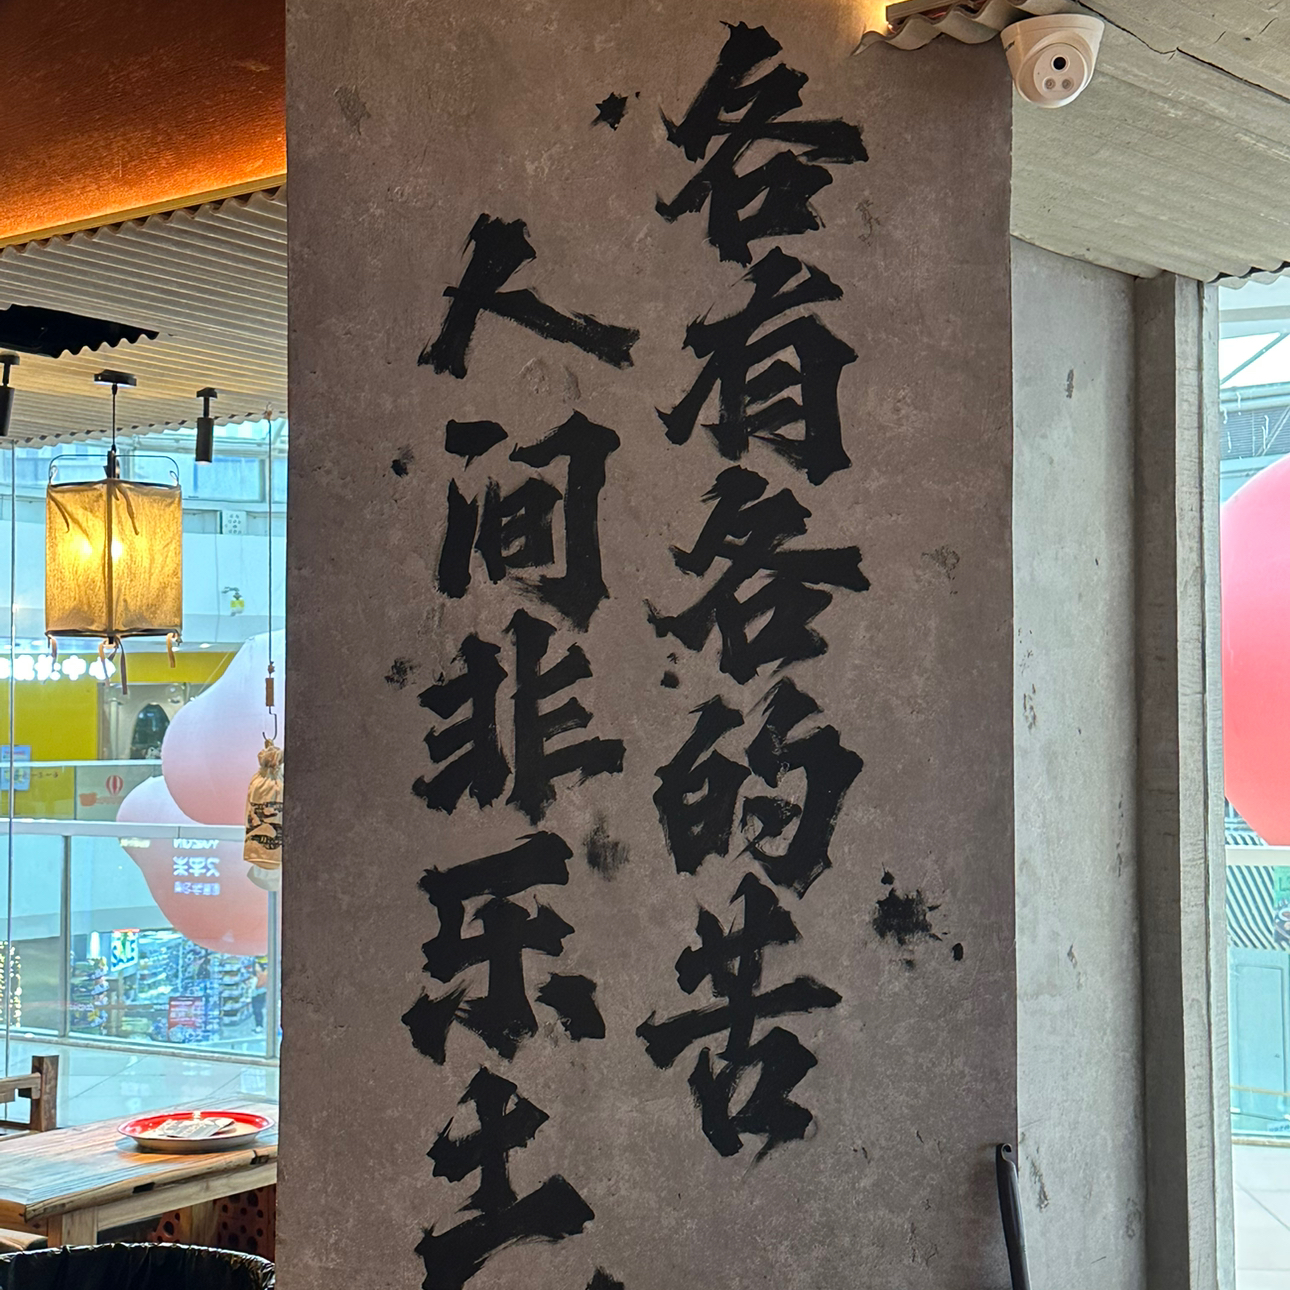 各有各的苦
人间非乐土